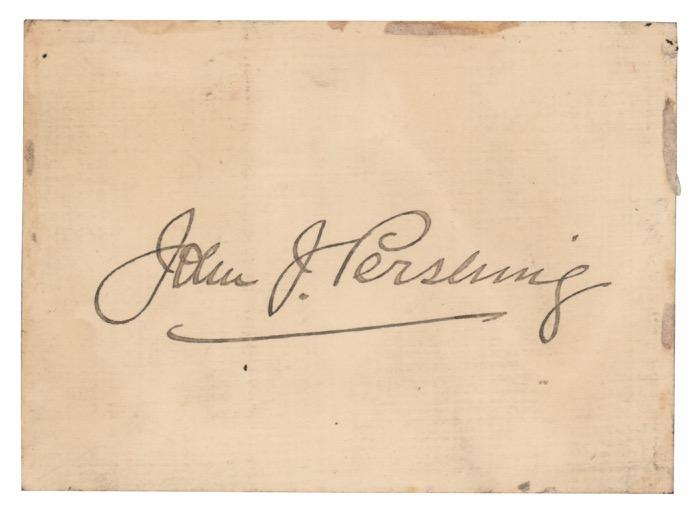 John J. Pershing